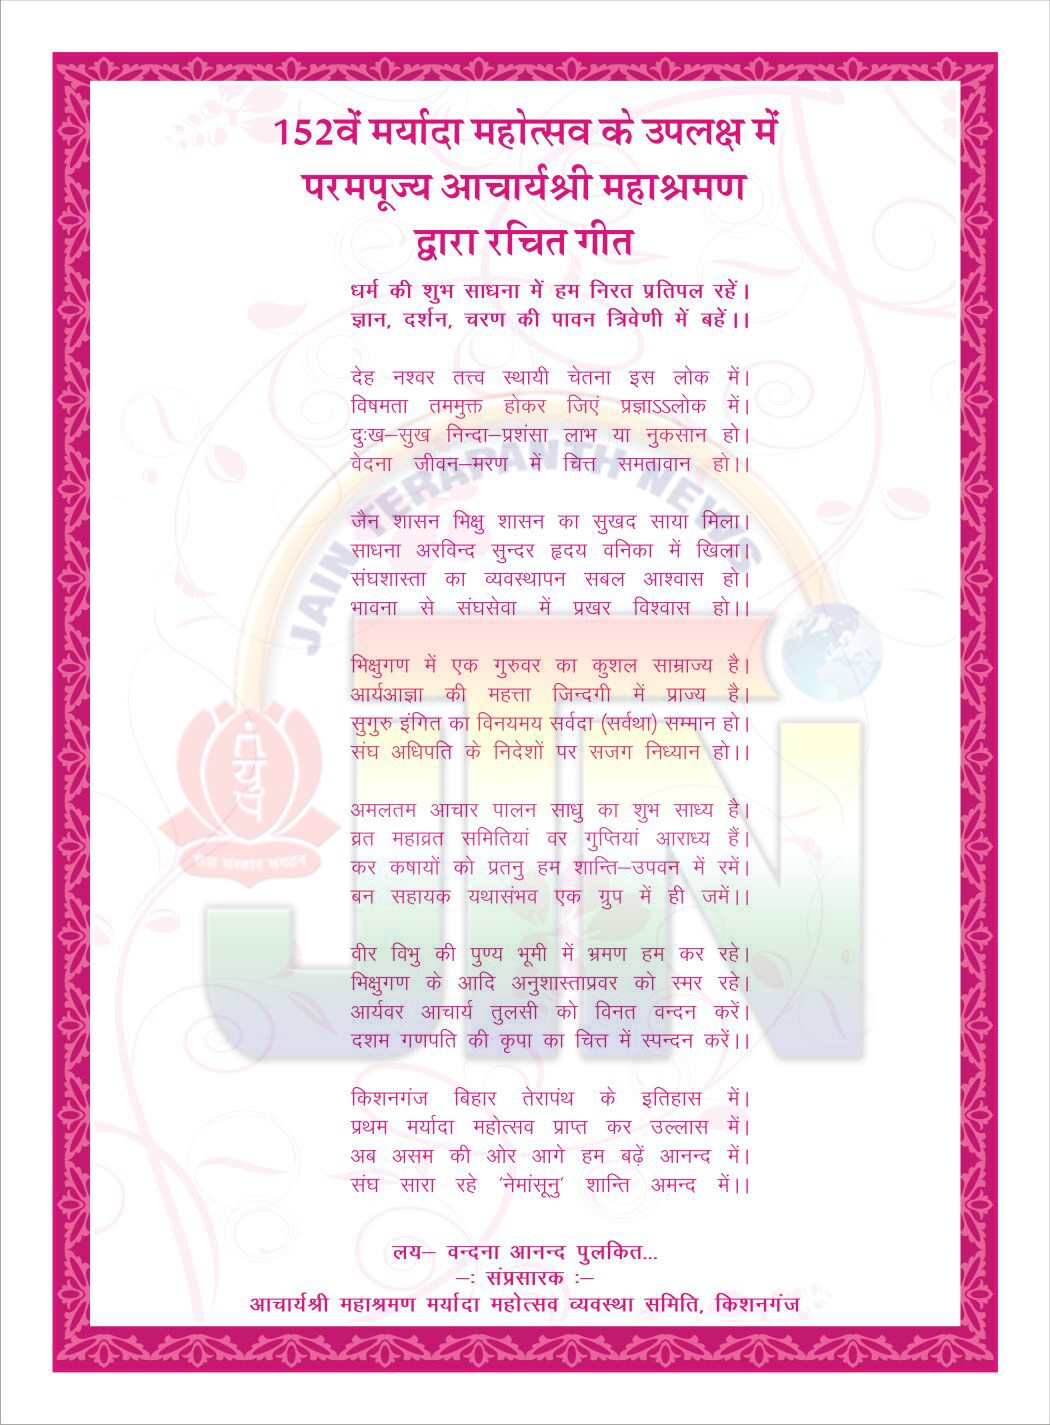 152वें मर्यादा महोत्सव के उपलक्ष में
परमपूज्य आचार्यश्री महाश्रमण
द्वारा रचित गीत
धर्म की शुभ साधना में हम निरत प्रतिपल रहें।
ज्ञान, दर्शन, चरण की पावन त्रिवेणी में बहें।।
देह नश्वर तत्त्व स्थायी चेतना इस लोक में।
विषमता तममुक्त होकर जिएं प्रज्ञाऽऽलोक में।
दुःख–सुख निन्दा–प्रशंसा लाभ या नुकसान हो।
वेदना जीवन–मरण में चित्त समतावान हो।।
जैन शासन भिक्षु शासन का सुखद साया मिला।
साधना अरविन्द सुन्दर हृदय वनिका में खिला।
संघशास्ता का व्यवस्थापन सबल आश्वास हो।
भावना से संघसेवा में प्रखर विश्वास हो।।
भिक्षुगण में एक गुरुवर का कुशल साम्राज्य है।
आर्यआज्ञा की महत्ता जिन्दगी में प्राज्य है।
सुगुरु इंगित का विनयमय सर्वदा (सर्वथा) सम्मान हो।
संघ अधिपति के निदेशों पर सजग निध्यान हो।।
अमलतम आचार पालन साधु का शुभ साध्य है।
व्रत महाव्रत समितियां वर गुप्तियां आराध्य हैं।
कर कषायों को प्रतनु हम शान्ति–उपवन में रमें।
बन सहायक यथासंभव एक ग्रुप में ही जमें।।
वीर विभु की पुण्य भूमी में भ्रमण हम कर रहे।
भिक्षुगण के आदि अनुशास्ताप्रवर को स्मर रहे।
आर्यवर आचार्य तुलसी को विनत वन्दन करें।
दशम गणपति की कृपा का चित्त में स्पन्दन करें।।
किशनगंज बिहार तेरापंथ के इतिहास में।
प्रथम मर्यादा महोत्सव प्राप्त कर उल्लास में।
अब असम की ओर आगे हम बढ़ें आनन्द में।
संघ सारा रहे 'नेमांसूनु' शान्ति अमन्द में।।
लय– वन्दना आनन्द पुलकित...
–: संप्रसारक :–
आचार्यश्री महाश्रमण मर्यादा महोत्सव व्यवस्था समिति, किशनगंज
JAIN TERAPANTH NEWS
JTN
तेयुप
सेवा संस्कार संगठन